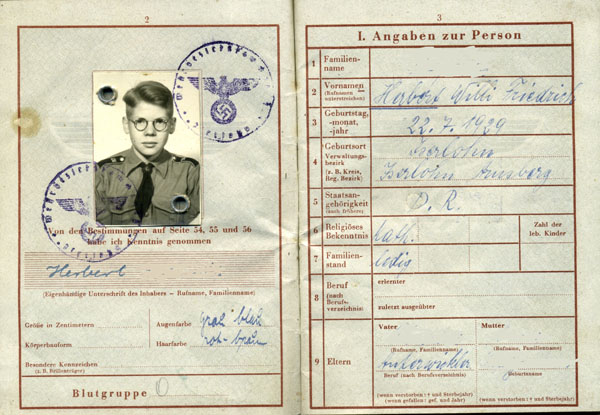 2
Wehrbezirkskommando
Von den Bestimmungen auf Seite 54, 55 und 56
habe ich Kenntnis genommen
Herbert
(Eigenhändige Unterschrift des Inhabers – Rufname, Familienname)
Größe in Zentimetern
Augenfarbe grau blau
Körperbauform
Haarfarbe rot-braun
Besondere Kennzeichen
(z. B. Brillenträger)
Blutgruppe O
3
I. Angaben zur Person
1 Familien-
name
2 Vornamen Herbert Willi Friedrich
(Rufnamen
unterstreichen)
3 Geburtstag,
-monat,
-jahr
22.7.1929
4 Geburtsort Iserlohn
Verwaltungs-
bezirk
(z. B. Kreis,
Reg. Bezirk)
Iserlohn Arnsberg
5 Staatsan-
gehörigkeit
(auch frühere)
D. R.
6 Religiöses
Bekenntnis
kath.
Zahl der
leb. Kinder
7 Familien-
stand
ledig
8 Beruf
(nach
Berufs-
verzeichnis)
erlernter
zuletzt ausgeübter
9 Eltern
Vater
Mutter
(Rufname, Familienname)
(Rufname, Familienname)
Ankerwickler
Beruf (nach Berufsverzeichnis)
Geburtsname
(wenn verstorben: † und Sterbejahr)
(wenn gefallen: gef. und Jahr)
(wenn verstorben: † und Sterbejahr)